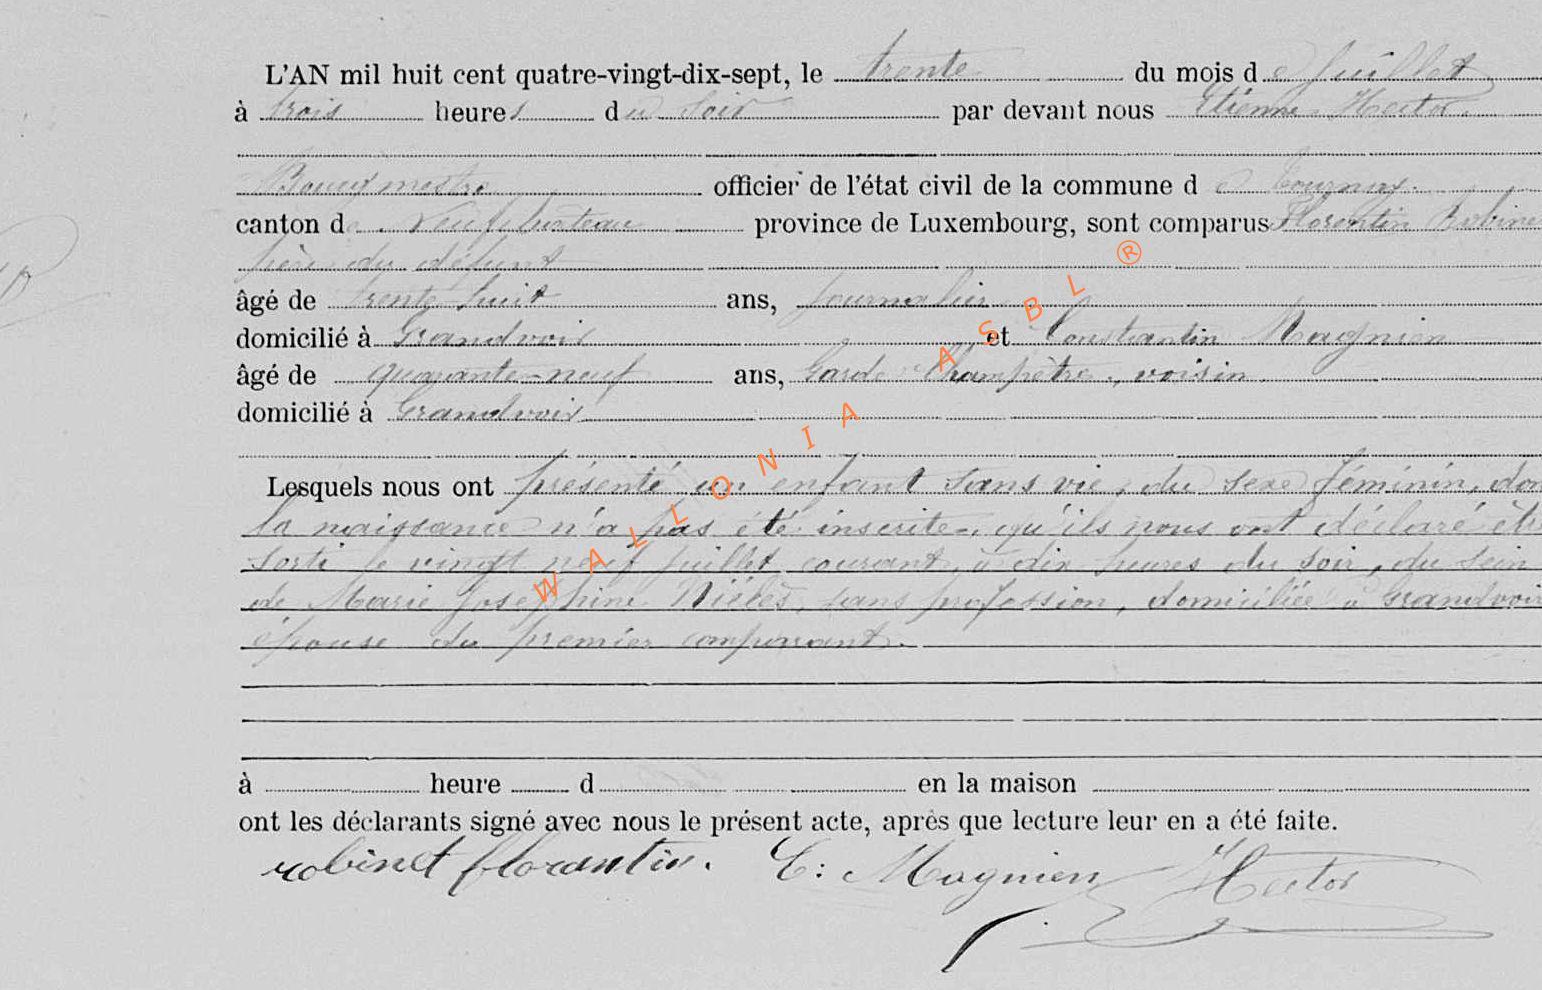 L'AN mil huit cent quatre-vingt-dix-sept, le trente du mois de Juillet
à trois heures du soir par devant nous Etienne Hector
Bourgmestre officier de l'état civil de la commune de Tournay.
canton de Neufchateau province de Luxembourg, sont comparus Florentin Robine
père du défunt
âgé de trente huit ans, journalier
domicilié à Grandvoir et Constantin Magnien
âgé de quarante-neuf ans, Garde Champêtre, voisin
domicilié à Grandvoir
Lesquels nous ont présenté un enfant sans vie, du sexe féminin, don
la naissance n'a pas été inscrite, qu'ils nous ont déclaré êtr
sorti le vingt neuf juillet courant, à dix heures du soir, du sein
de Marie Josephine sans profession, domiciliée à Grandvoir
épouse du premier comparant.
à heure d en la maison
ont les déclarants signé avec nous le présent acte, après que lecture leur en a été faite.
robinet florentin. C: Magnien Hector
WALLONIA ASBL ®